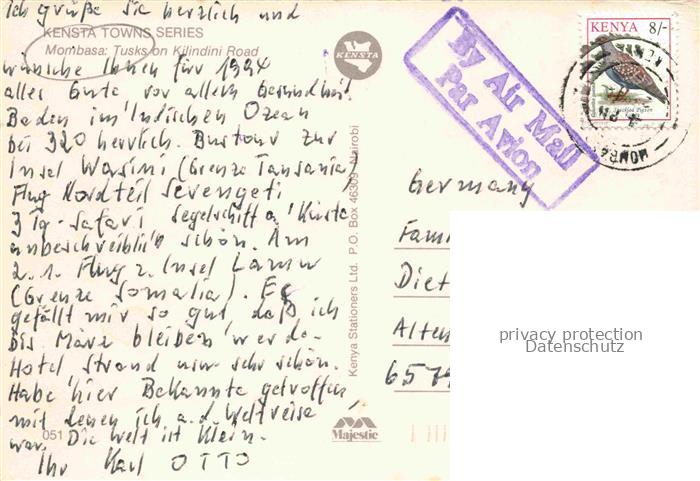 Ich grüße Sie herzlich und
KENSTA TOWNS SERIES
Mombasa: Tusks on Kilindini Road
wünsche Ihnen für 1994
alles Gute vor allem Gesundheit.
Baden im Indischen Ozean
bei 32° herrlich. Bustour zur
Insel Wasini (Grenze Tansania)
Flug Nordteil Serengeti
3 tg-Safari Segelschiff a. Küste
unbeschreiblich schön. Am
2.1. Flug z. Insel Lamu
(Grenze Somalia). Es
gefällt mir so gut, daß ich
bis März bleiben werde.
Hotel Strand usw. sehr schön.
Habe hier Bekannte getroffen
mit denen ich a. d. Weltreise
war. Die Welt ist klein.
051
Ihr Karl OTTO
KENSTA
Kenya Stationers Ltd. P.O. Box 46309 Nairobi
Majestic
By Air Mail
Par Avion
KENYA 8/-
Speckled Pigeon
MOMBA
Germany
Fam
Diet
Alten
657
privacy protection
Datenschutz